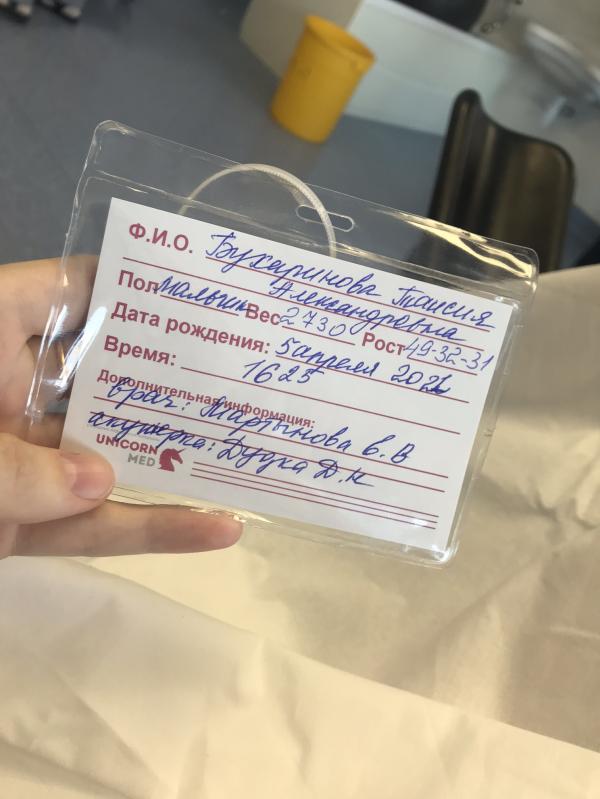 Ф.И.О. Бухаринова Таисия
Александровна
Пол мальчик Вес 2730 Рост 49-32-31
Дата рождения: 5 апреля
Время: 16 25
Дополнительная информация:
врач: Мартынова В.В
акушерка: Дудка Д.Н
UNICORN
MED